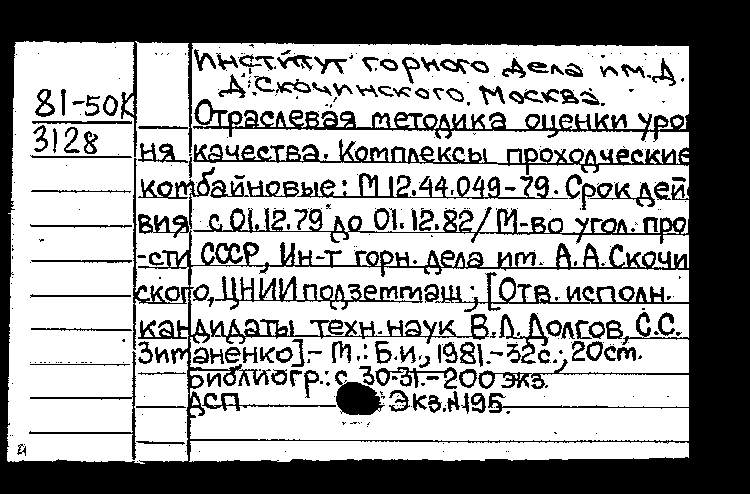 Институт горного дела им. Д.
Д. Скочинского. Москва.
81-50К
3128
Отраслевая методика оценки уров
ня качества. Комплексы проходческие
комбайновые: М 12.44.049-79. Срок дейс
вия с 01.12.79 до 01.12.82/М-во угол. про
-сти СССР, Ин-т горн. дела им. А.А. Скочи
ского, ЦНИИподземмаш; [Отв. исполн.
кандидаты техн. наук В.Л. Долгов, С.С.
Зиманенко].- М.: Б.и., 1981.-32с.; 20см.
Библиогр.: с 30-31.-200 экз.
ДСП Экз.№195.